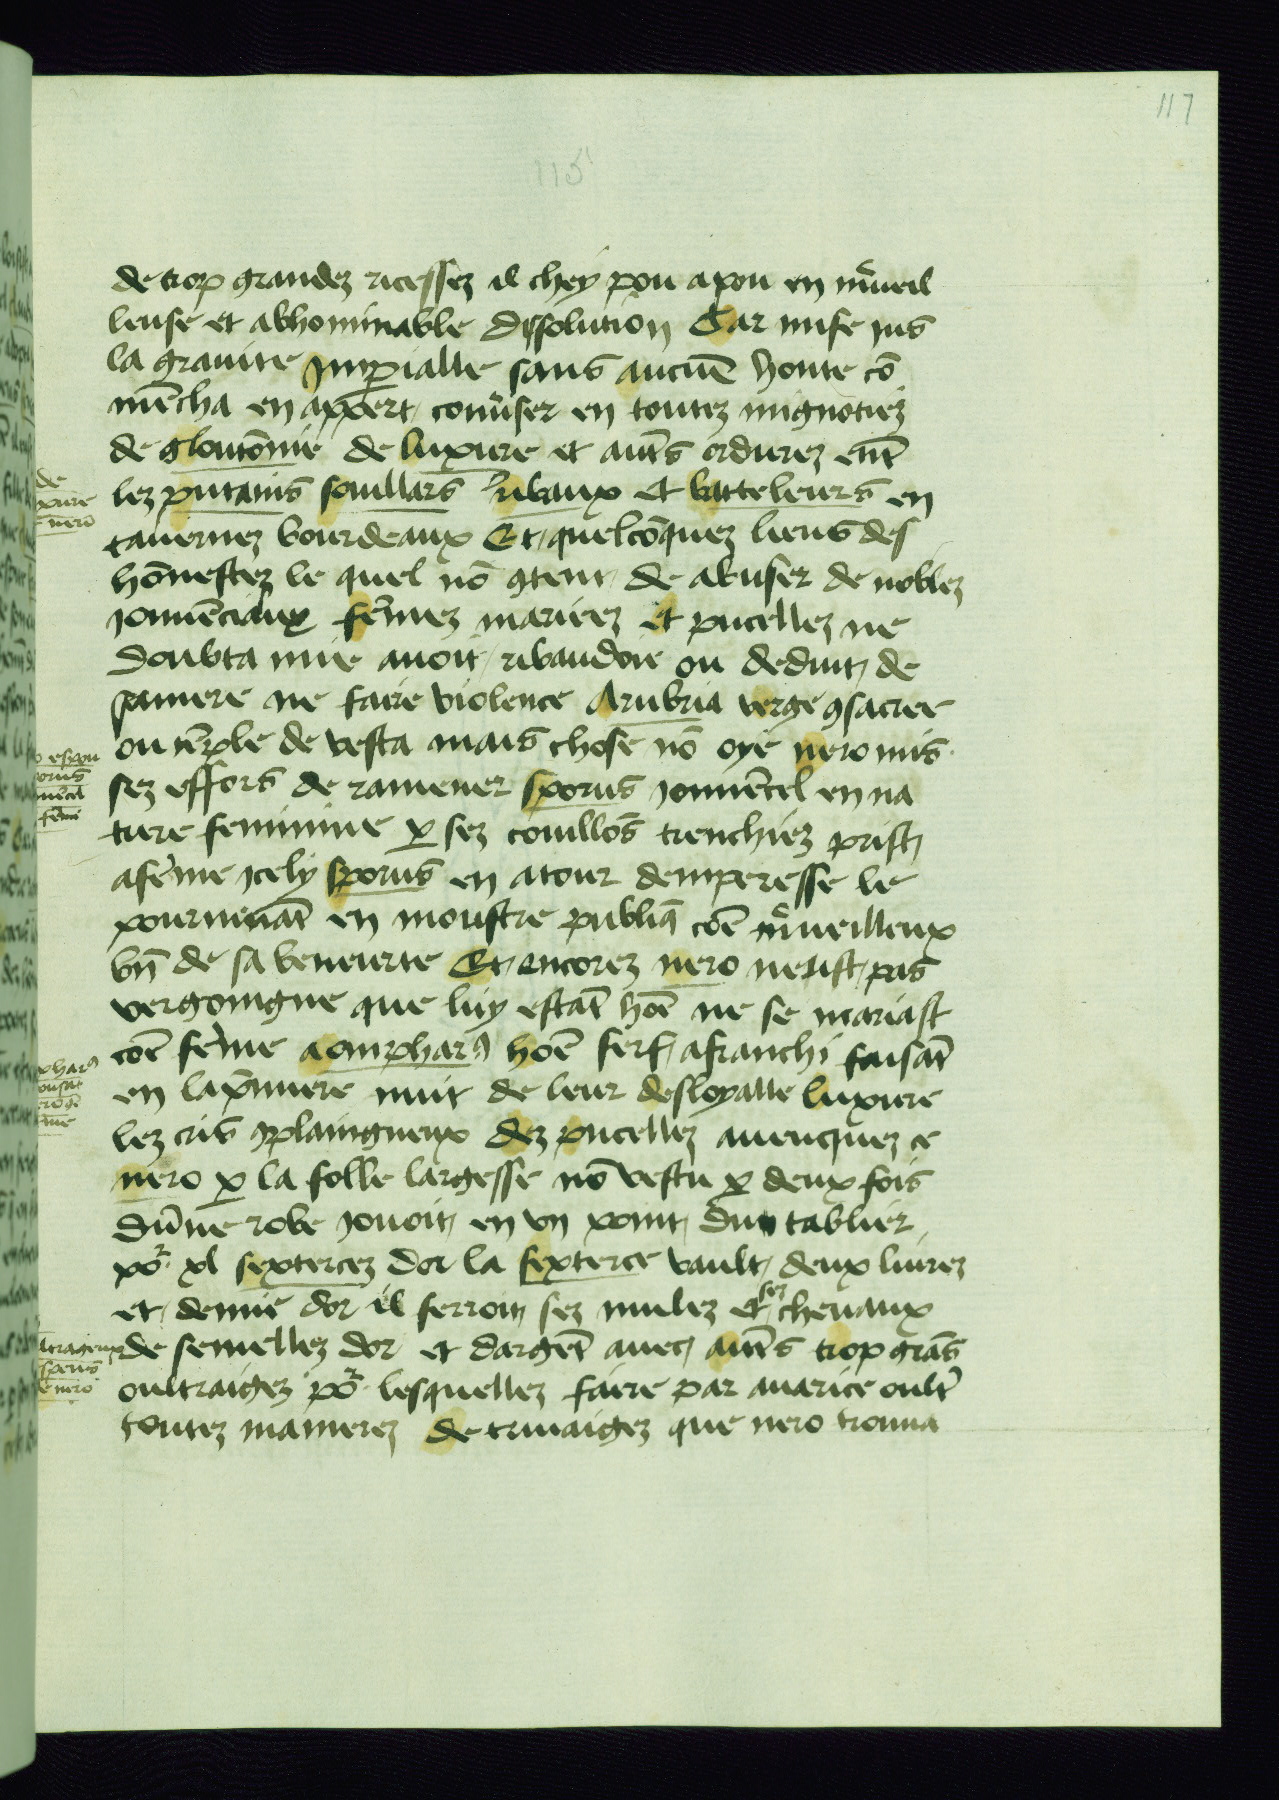 117
115
de trop grandez ricessez il chey pou a pou en mͬueil
leuse et abhominable dissolution Car mise ius
la grauite Imꝑialle sans aucūe honte cō
mēcha en appert conũser en toutez mignotiez
de gloutōnie de luxure et aut̃s ordurez ent̃
lez putains souillars ribaux et batteleurs en
tauernez bourdeaux Et quelcōquez lieus des
hōnestez le quel nō ꝯtent de abuser de noblez
jouuēciaux fēmez mariéez et pucellez ne
doubta mie auoir ribauderie ou deduit de
sa mere ne faire violence A rubria verge ꝯsacree
ou tēple de vesta mais chose nō oye nero mis
sez effors de ramener sporus jouuēcel en na
ture feminine ꝑ sez couillōs trenchiez prist
a fēme jcely sporus en atour demperesse le
pourmenāt en moustre publiq̄ cōe mͬueilleux
bn̄ de sa beneurte Et encorez nero neust pas
vergoingne que luy estāt hōe ne se mariast
cōe fēme a ompharꝰ hōe serf afranchi faisāt
en la p̄miere nuit de leur desloyalle luxure
lez cris ꝯplaingneux dez pucellez auencquez ce
nero ꝑ la folle largesse nō vestu ꝑ deux fois
dūne robe jouoit en vn point du tablier
poͬ xl sextercez dor la sexterce vault deux liurez
et demie dor il ferroit sez mulez et sez cheuaux
de semellez dor et dargēt auec aut̃s trop grās
oultraigez poͬ lesquellez faire par auarice oult̃
toutez manierez de truaigez que nero trouua
de
nero